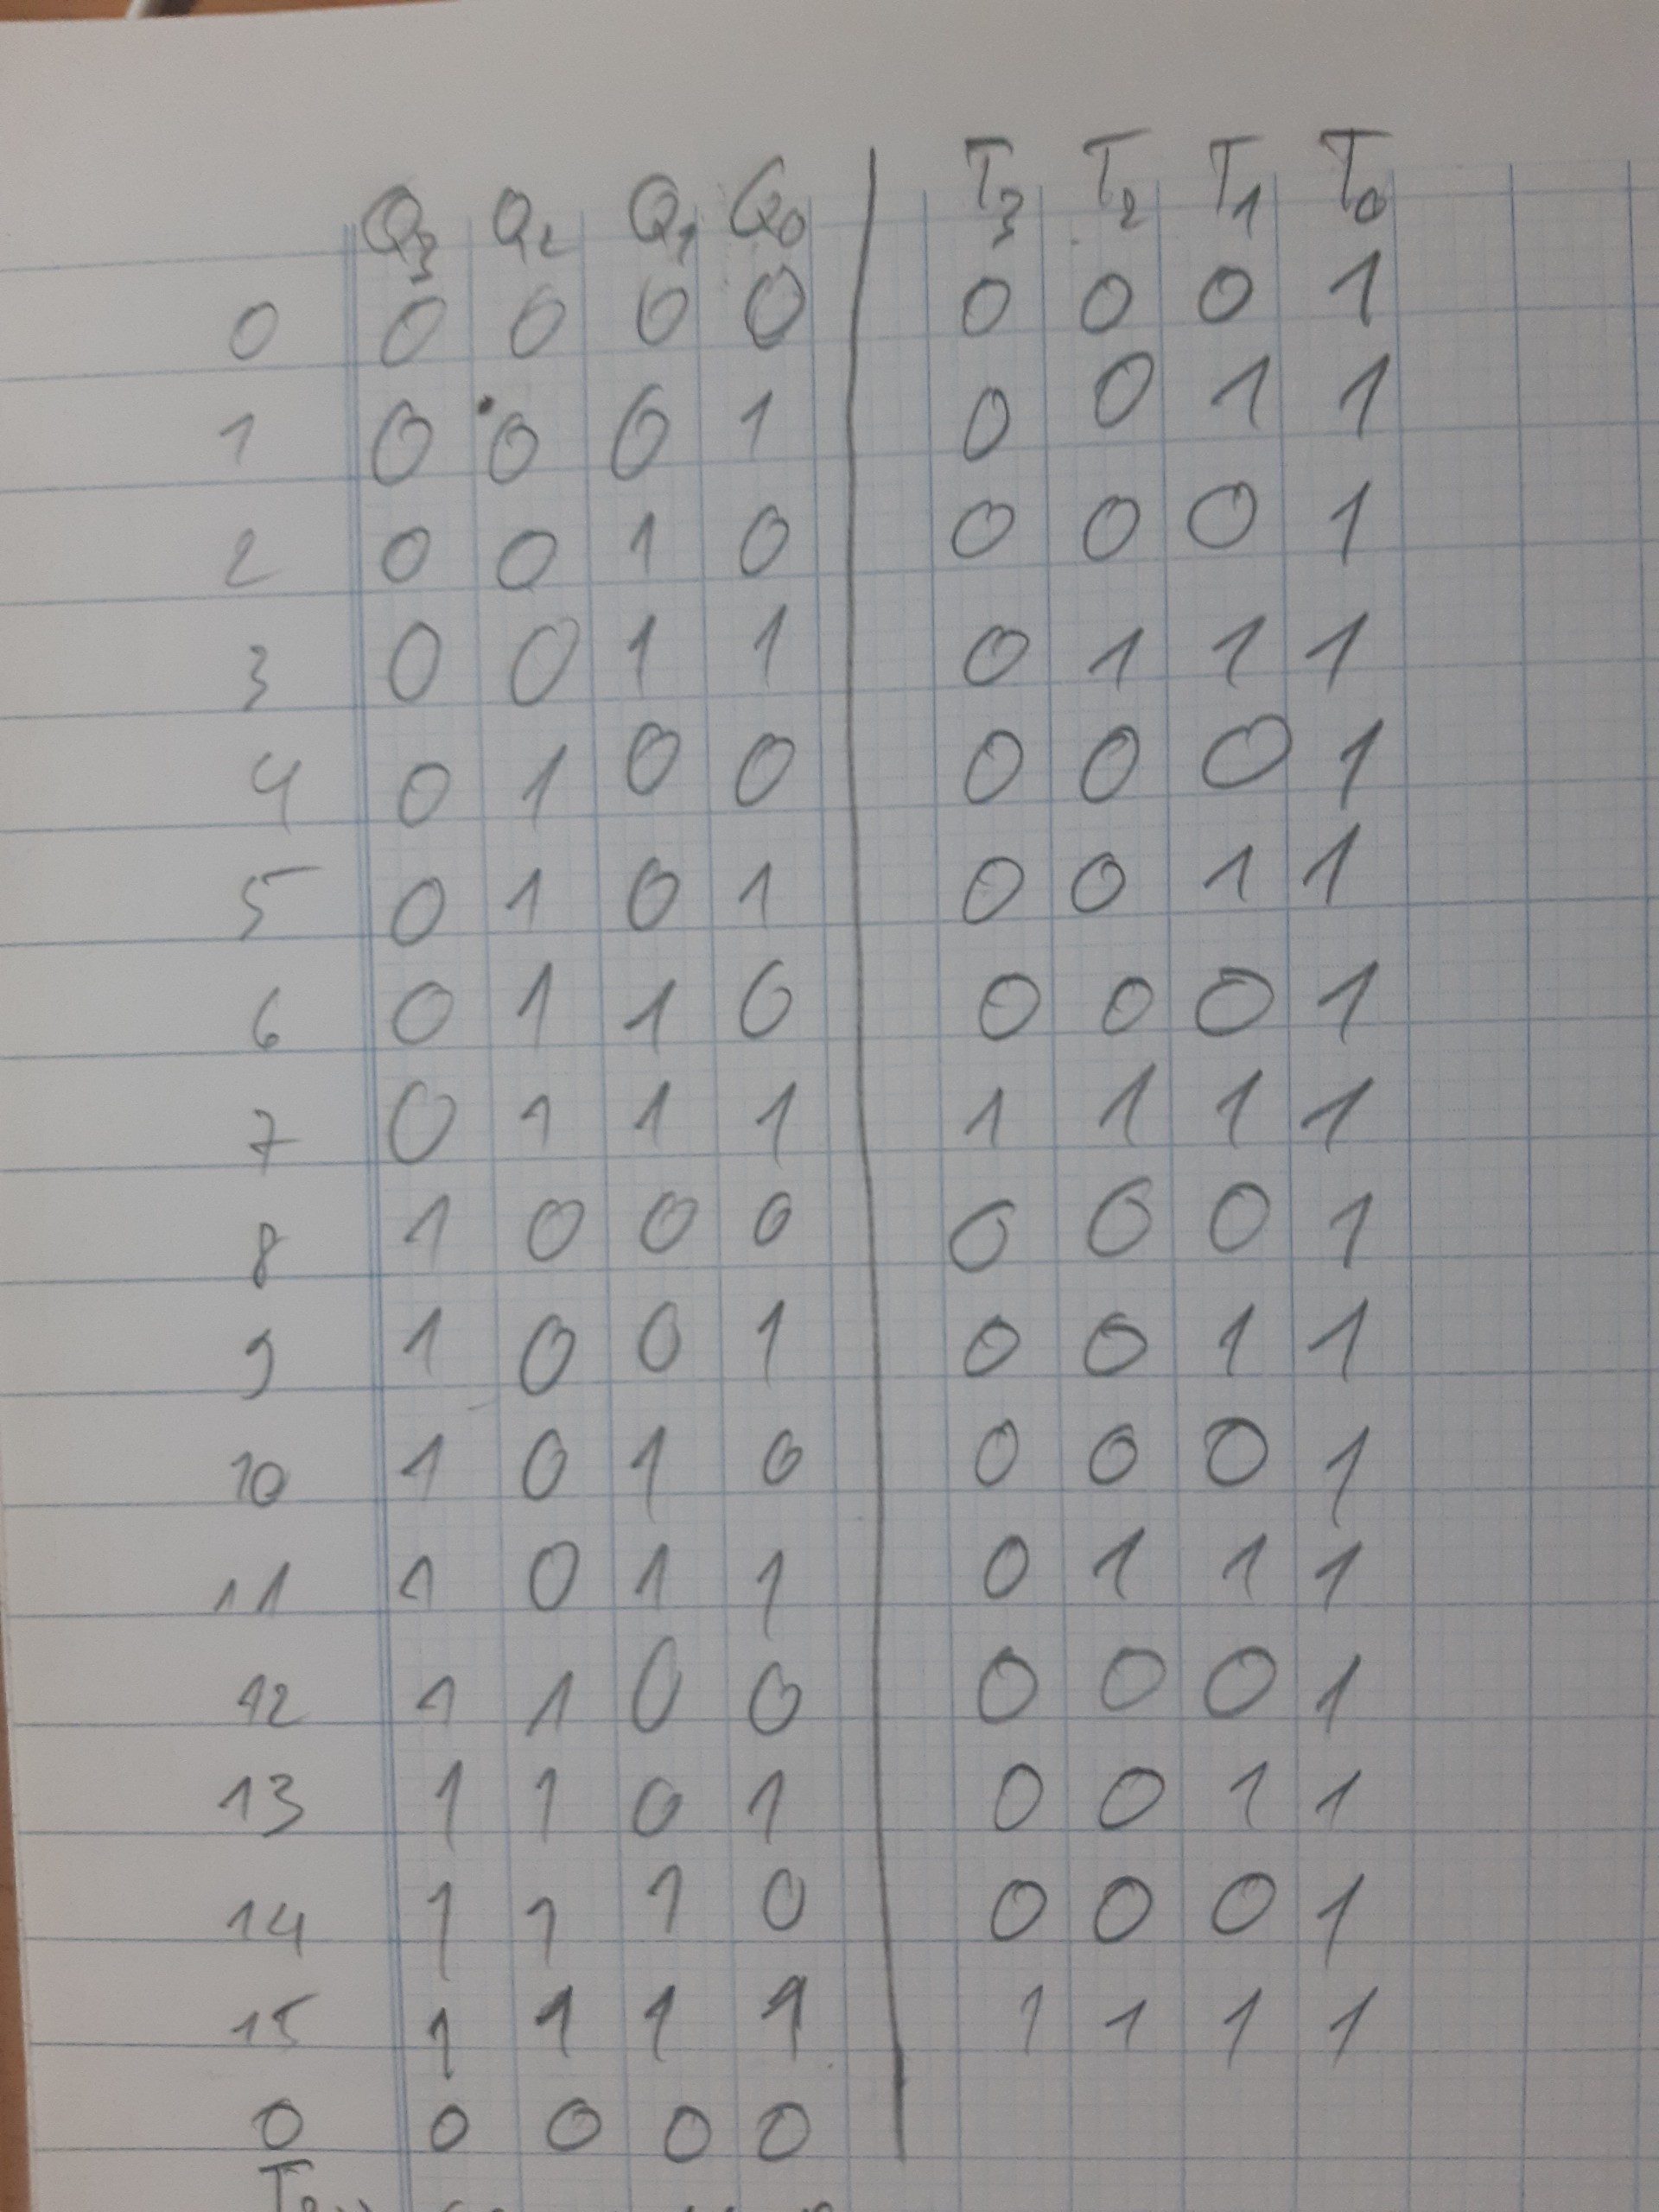 Q3 Q2 Q1 Q0 T3 T2 T1 T0
0 0 0 0 0 0 0 0 1
1 0 0 0 1 0 0 1 1
2 0 0 1 0 0 0 0 1
3 0 0 1 1 0 1 1 1
4 0 1 0 0 0 0 0 1
5 0 1 0 1 0 0 1 1
6 0 1 1 0 0 0 0 1
7 0 1 1 1 1 1 1 1
8 1 0 0 0 0 0 0 1
9 1 0 0 1 0 0 1 1
10 1 0 1 0 0 0 0 1
11 1 0 1 1 0 1 1 1
12 1 1 0 0 0 0 0 1
13 1 1 0 1 0 0 1 1
14 1 1 1 0 0 0 0 1
15 1 1 1 1 1 1 1 1
0 0 0 0 0